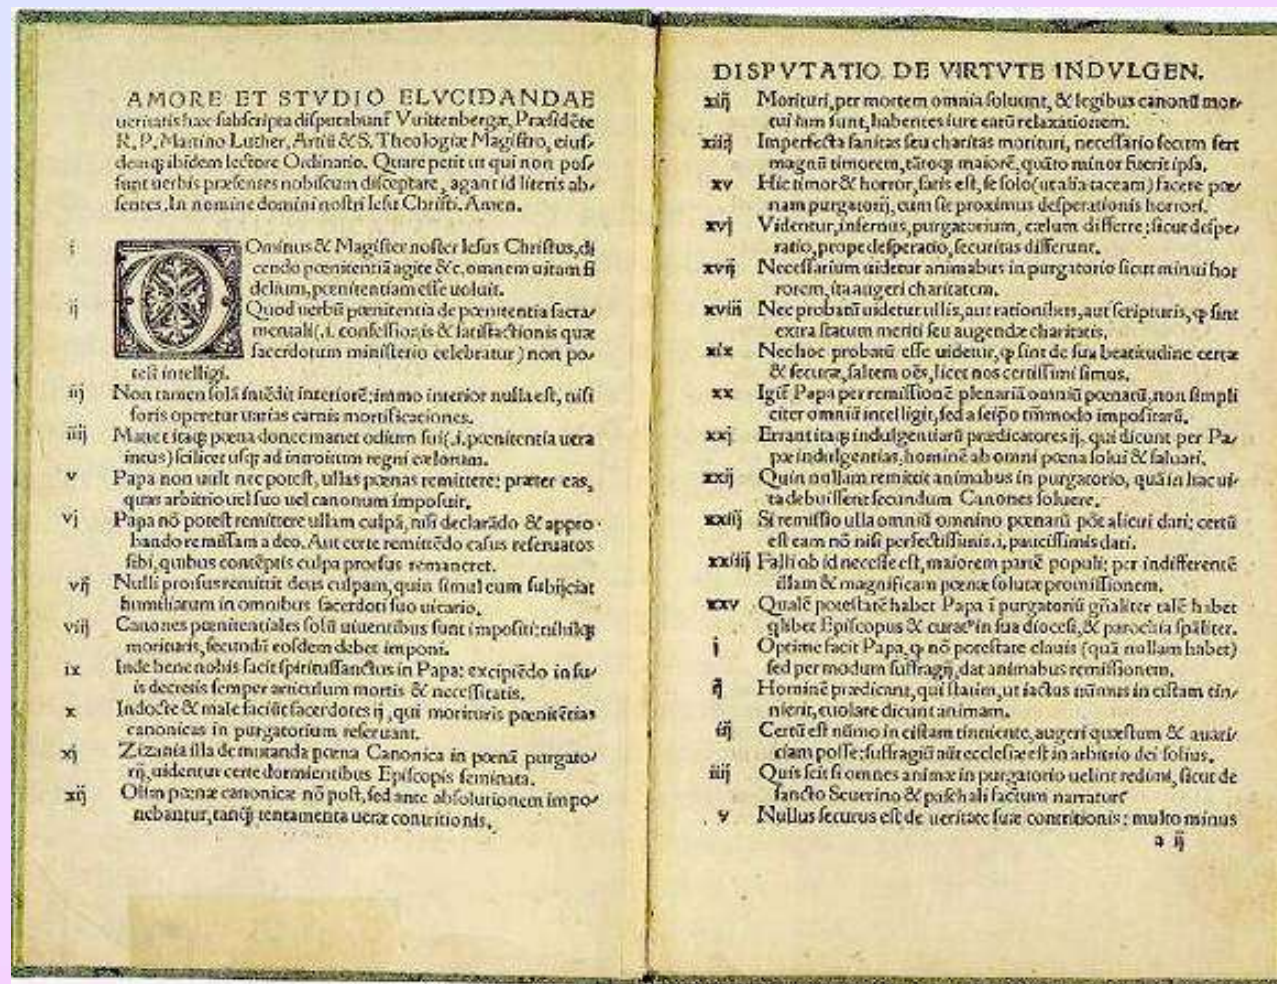 AMORE ET STVDIO ELVCIDANDAE
ueritatis hæc subscripta disputabunt̃ Vuittenbergæ, Præsidẽte
R. P. Martino Luther, Artiũ & S. Theologiæ Magistro, eius/
demq; ibidem lectore Ordinario. Quare petit ut qui non pos/
sunt uerbis præsentes nobiscum disceptare, agant id literis ab/
sentes. In nomine domini nostri Iesu Christi. Amen.
i DOminus & Magister noster Iesus Christus, di
cendo pœnitentiã agite &c, omnem uitam fi
delium, pœnitentiam esse uoluit.
ij Quod uerbũ pœnitentia de pœnitentia sacra/
mentali (.i. confessionis & satisfactionis quæ
sacerdotum ministerio celebratur) non po/
test intelligi.
iij Non tamen solã intẽdit interiorẽ: immo interior nulla est, nisi
foris operetur uarias carnis mortificationes.
iiij Manet itaq; pœna donec manet odium sui (.i. pœnitentia uera
intus) scilicet usq; ad introitum regni cælorum.
v Papa non uult nec potest, ullas pœnas remittere: præter eas,
quas arbitrio uel suo uel canonum imposuit.
vj Papa nõ potest remittere ullam culpã, nisi declarãdo & appro/
bando remissam a deo. Aut certe remittẽdo casus reseruatos
sibi, quibus contẽptis culpa prorsus remaneret.
vij Nulli prorsus remittit deus culpam, quin simul cum subijciat
humiliatum in omnibus sacerdoti suo uicario.
viij Canones pœnitentiales solũ uiuentibus sunt impositi: nihilq;
morituris, secundũ eosdem debet imponi.
ix Inde bene nobis facit spiritussanctus in Papa: excipiẽdo in su/
is decretis semper articulum mortis & necessitatis.
x Indocte & male faciũt sacerdotes ij, qui morituris pœnitẽtias
canonicas in purgatorium reseruant.
xj Zizania illa de mutanda pœna Canonica in pœnã purgato/
rij, uidentur certe dormientibus Episcopis seminata.
xij Olim pœnæ canonicæ nõ post, sed ante absolutionem impo/
nebantur, tanq̃ tentamenta ueræ contritionis.
DISPVTATIO DE VIRTVTE INDVLGEN.
xiij Morituri, per mortem omnia soluunt, & legibus canonũ mor/
tui iam sunt, habentes iure earũ relaxationem.
xiiij Imperfecta sanitas seu charitas morituri, necessario secum fert
magnũ timorem, tãtoq; maiorẽ, quãto minor fuerit ipsa.
xv Hic timor & horror, satis est, se solo (ut alia taceam) facere pœ/
nam purgatorij, cum sit proximus desperationis horrori.
xvj Videntur, infernus, purgatorium, cælum differre: sicut despe/
ratio, prope desperatio, securitas differunt.
xvij Necessarium uidetur animabus in purgatorio sicut minui hor
rorem, ita augeri charitatem.
xviij Nec probatũ uidetur ullis, aut rationibus, aut scripturis, q̃ sint
extra statum meriti seu augendæ charitatis.
xix Nec hoc probatũ esse uidetur, q̃ sint de sua beatitudine certæ
& securæ, saltem oẽs, licet nos certissimi simus.
xx Igit̃ Papa per remissionẽ plenariã omniũ pœnarũ, non simpli
citer omniũ intelligit, sed a seipo tm̃modo impositarũ.
xxj Errant itaq; indulgentiarũ prædicatores ij, qui dicunt per Pa/
pæ indulgentias, hominẽ ab omni pœna solui & saluari.
xxij Quin nullam remittit animabus in purgatorio, quã in hac ui/
ta debuissent secundum Canones soluere.
xxiij Si remissio ulla omniũ omnino pœnarũ põt alicui dari: certũ
est eam nõ nisi perfectissimis .i. paucissimis dari.
xxiiij Falli ob id necesse est, maiorem partẽ populi: per indifferentẽ
illam & magnificam pœnæ solutæ promissionem.
xxv Qualẽ potestatẽ habet Papa ĩ purgatoriũ gñaliter talẽ habet
qlibet Episcopus & curat⁹ in sua diocesi, & parochia sp̃aliter.
j Optime facit Papa, q̃ nõ potestate clauis (quã nullam habet)
sed per modum suffragij, dat animabus remissionem.
ij Hominẽ prædicant, qui statim, ut iactus nũmus in cistam tin/
nierit, euolare dicunt animam.
iij Certũ est nũmo in cistam tinniente, augeri quæstum & auari/
ciam posse: suffragiũ aũt ecclesiæ est in arbitrio dei solius.
iiij Quis scit si omnes animæ in purgatorio uelint redimi, sicut de
sancto Seuerino & paschali factum narratur?
v Nullus securus est de ueritate suæ contritionis: multo minus
a ij